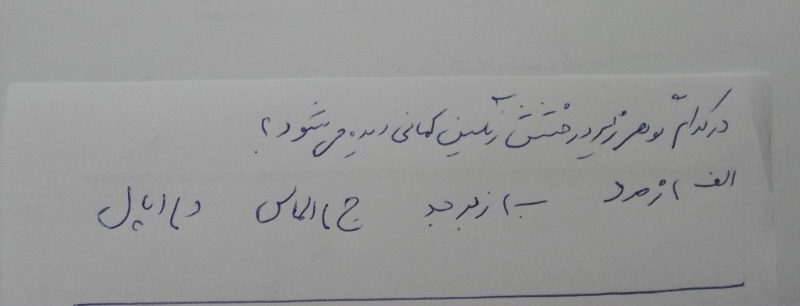 در کدام گوهر زیر درخشش رنگین کمانی دیده می شود؟
الف) زمرد ب) زبرجد ج) الماس د) اپال